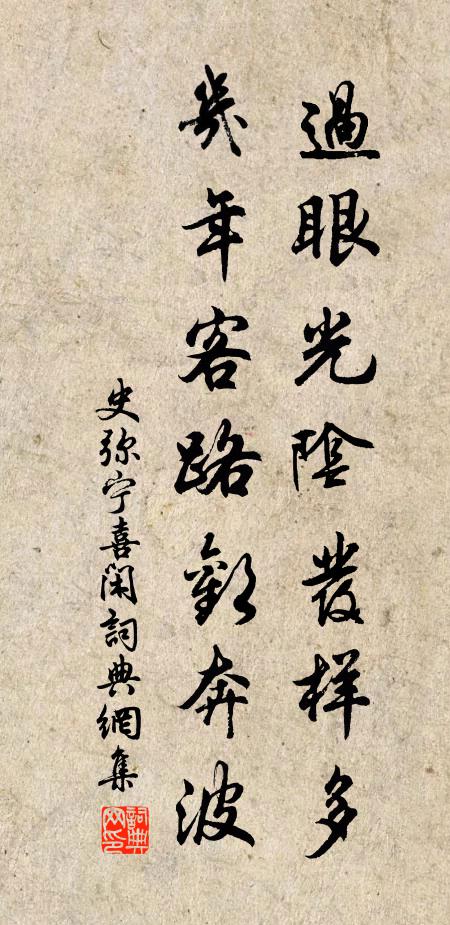 過眼光陰發样多
幾年客路奔波
史弥宁喜闲詞典網集
詞典网印